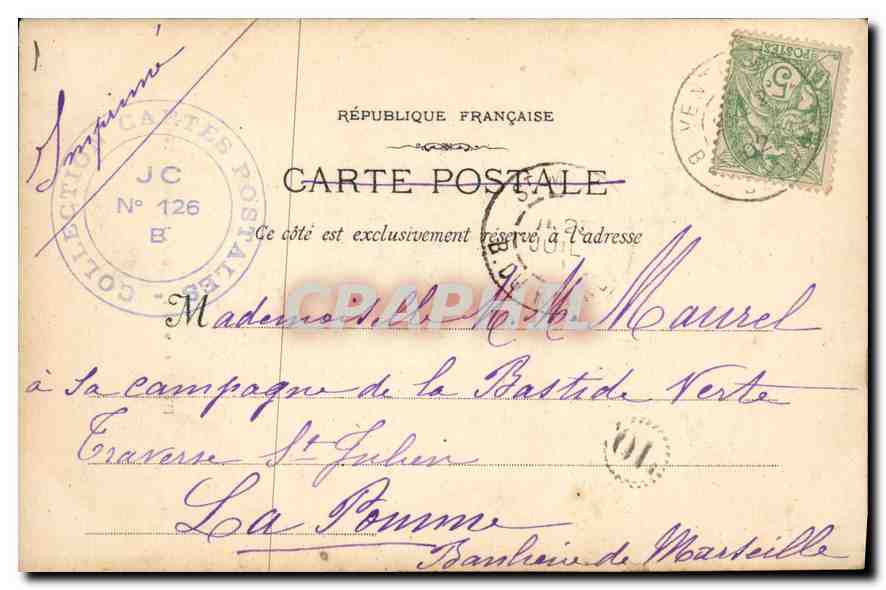 Imprimé
RÉPUBLIQUE FRANÇAISE
CARTE POSTALE
Ce côté est exclusivement réservé à l'adresse
COLLECTION CARTES POSTALES
JC
N° 126
B
POSTES
5
CPAPHIL
Mademoiselle M. Maurel
à sa campagne de la Bastide Verte
Traverse St Julien
La Pomme
Banlieue de Marseille